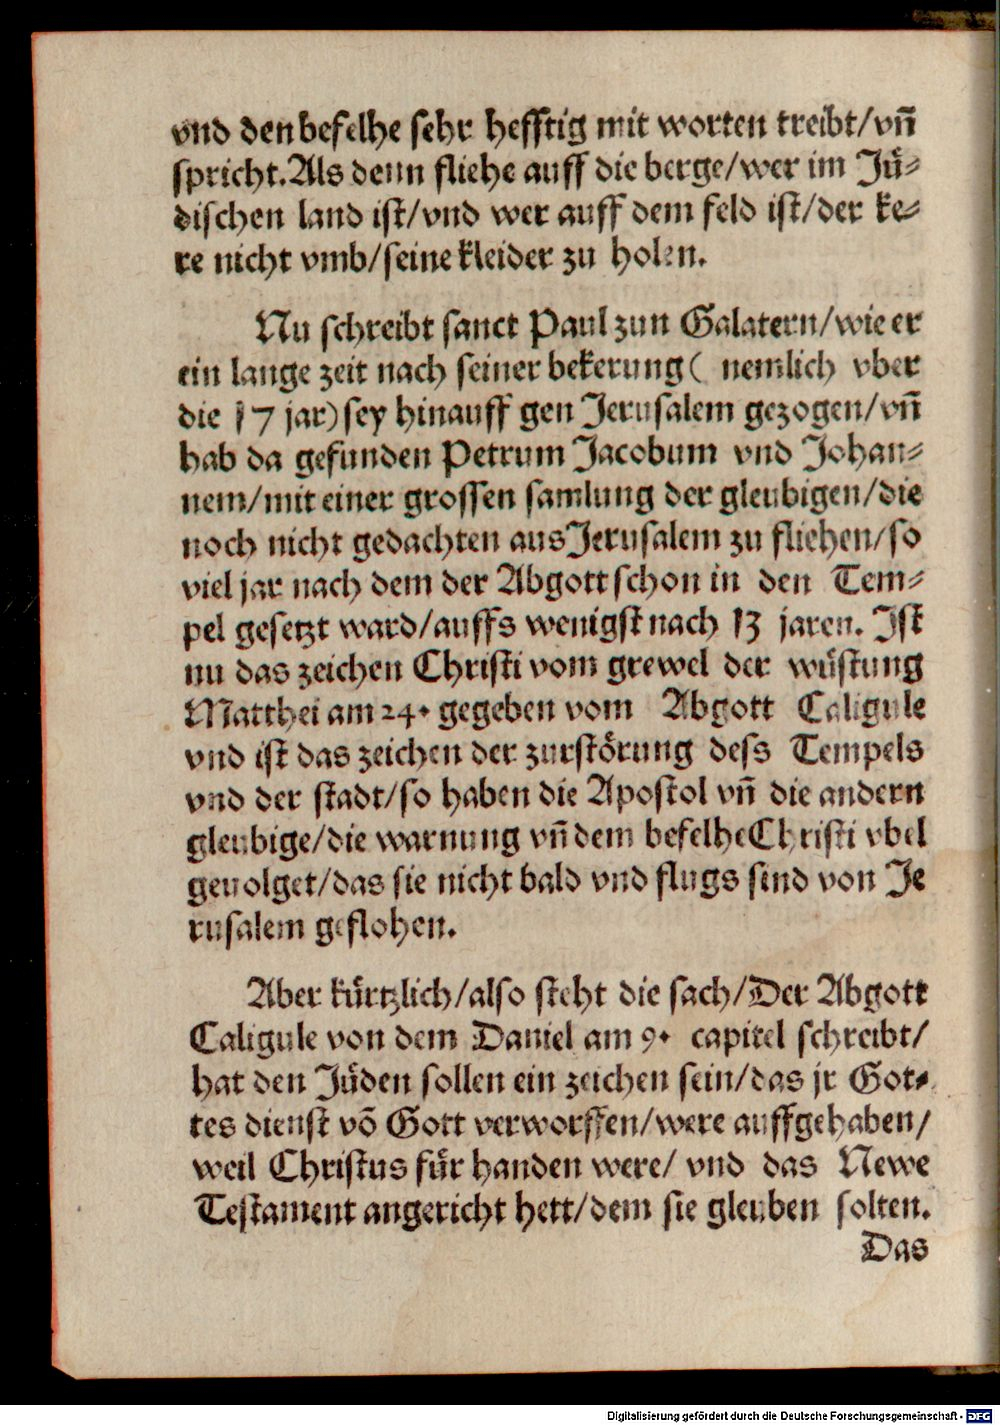 vnd den befelhe sehr hefftig mit worten treibt/vñ
spricht. Als denn fliehe auff die berge/wer im Jü⸗
dischen land ist/vnd wer auff dem feld ist/der ke⸗
re nicht vmb/seine kleider zu holen.
Nu schreibt sanct Paul zun Galatern/wie er
ein lange zeit nach seiner bekerung ( nemlich vber
die 17 jar) sey hinauff gen Jerusalem gezogen/vñ
hab da gefunden Petrum Jacobum vnd Johan⸗
nem/mit einer grossen samlung der gleubigen/die
noch nicht gedachten aus Jerusalem zu fliehen/so
viel jar nach dem der Abgott schon in den Tem⸗
pel gesetzt ward/auffs wenigst nach 13 jaren. Ist
nu das zeichen Christi vom grewel der wüstung
Matthei am 24. gegeben vom Abgott Caligule
vnd ist das zeichen der zurstörung dess Tempels
vnd der stadt/so haben die Apostol vñ die andern
gleubige/die warnung vñ dem befelhe Christi vbel
geuolget/das sie nicht bald vnd flugs sind von Je
rusalem geflohen.
Aber kürtzlich/also steht die sach/Der Abgott
Caligule von dem Daniel am 9. capitel schreibt/
hat den Jüden sollen ein zeichen sein/das jr Got⸗
tes dienst võ Gott verworffen/were auffgehaben/
weil Christus für handen were/ vnd das Newe
Testament angericht hett/dem sie gleuben solten.
Das
Digitalisierung gefördert durch die Deutsche Forschungsgemeinschaft - DFG